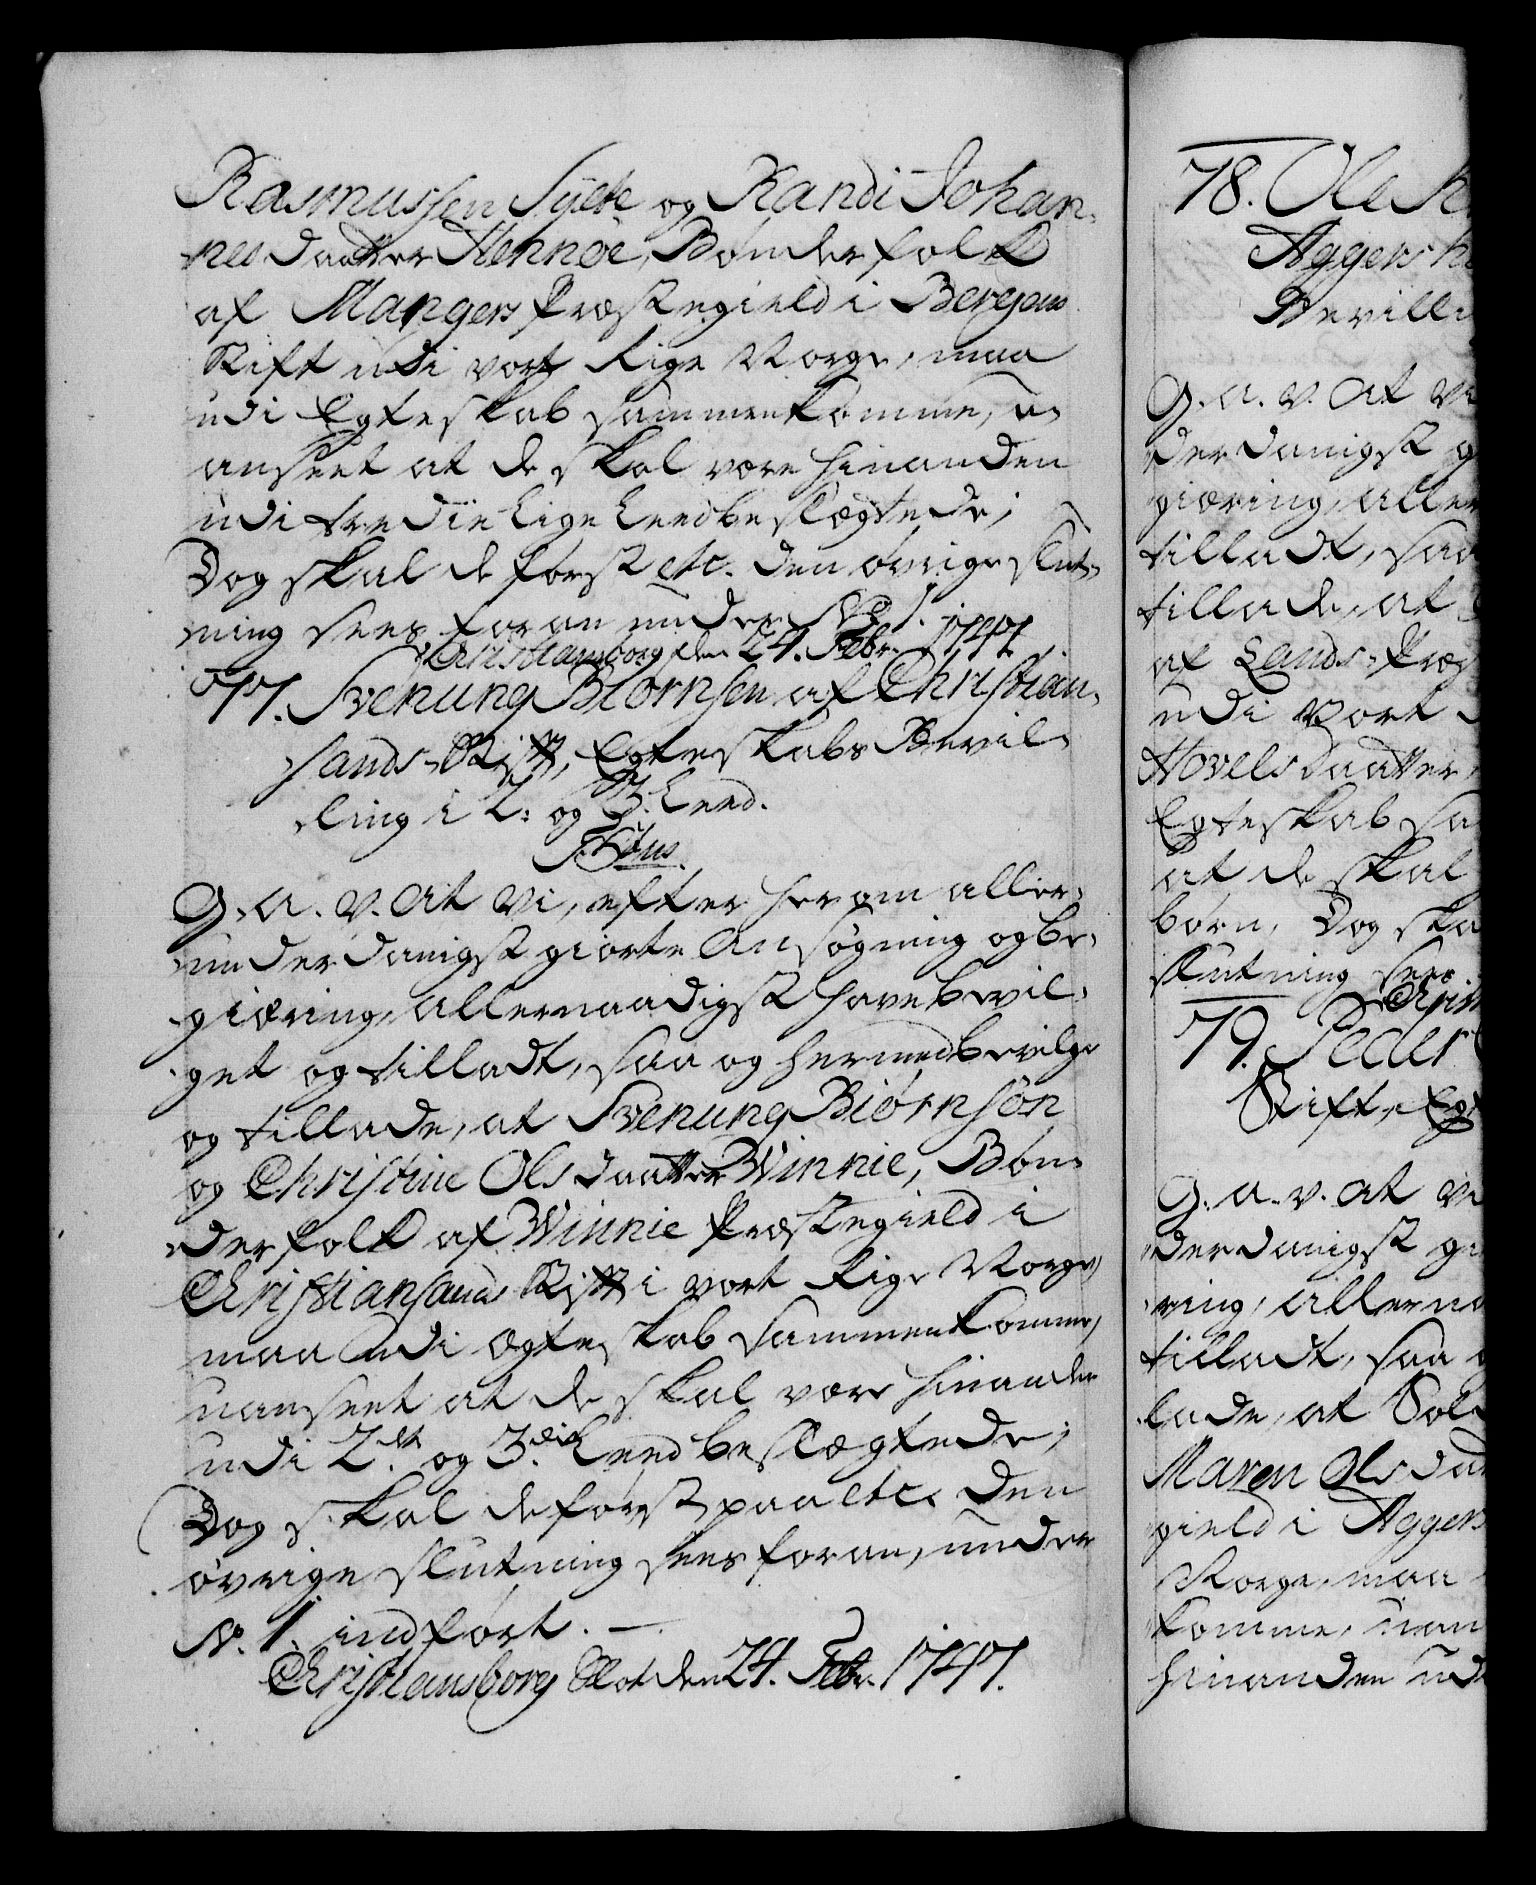 Rasmussen Sylte og Randi Johan-
nes daatter Hennøe, Bønderfolk
af Mangers Præstegield i Bergens
Stift udi vort Rige Norge, maa
udi Egteskab sammenkomme, u-
anseet at de skal være hinanden
udi tredie Lige Leed beslægtede;
Dog skal de først etc. den øvrige slut-
ning sees foran under No. 1.
Christiansborg den 24. Febr. 1747.
77. Svenung Biørnsen af Christian-
sands Stift, Egteskabs Bevil-
ling i 2: og 3. Leed.
G. A. V. At vi, efter herom aller-
underdanigst giorte Ansøgning og be-
giæring, allernaadigst have bevil-
get og tilladt, saa og hermed bevilge
og tillade, at Svenung Biørnsøn
og Christine Olsdaatter Winnie, Bøn-
derfolk af Winnie Præstegield i
Christiansands Stift i vort Rige Norge,
maa udi Ægteskab sammenkomme,
uanseet at de skal være hinanden
udi 2det og 3die Leed beslægtede;
Dog skal de først paa etc. den
øvrige slutning sees foran, under
No. 1. indført. —
Christiansborg Slot den 24. Febr. 1747.
78. Ole
Aggersh
Bevilli
G. a. v. At vi
derdanigst g
giæring, aller
tilladt, saa
tillade, at
af Lands-Præs
udi Vort
Hovelsdaatter
Egteskab sa
at de skal
børn, Dog ska
slutning sees
Chris
79. Peder
Stift, Egt
G. a. v. At vi
derdanigst gi
ring, allerna
tilladt, saa
lade, at Sol
Maren Olsdaa
gield i Aggers
Norge, maa
komme, uan
hinanden ud